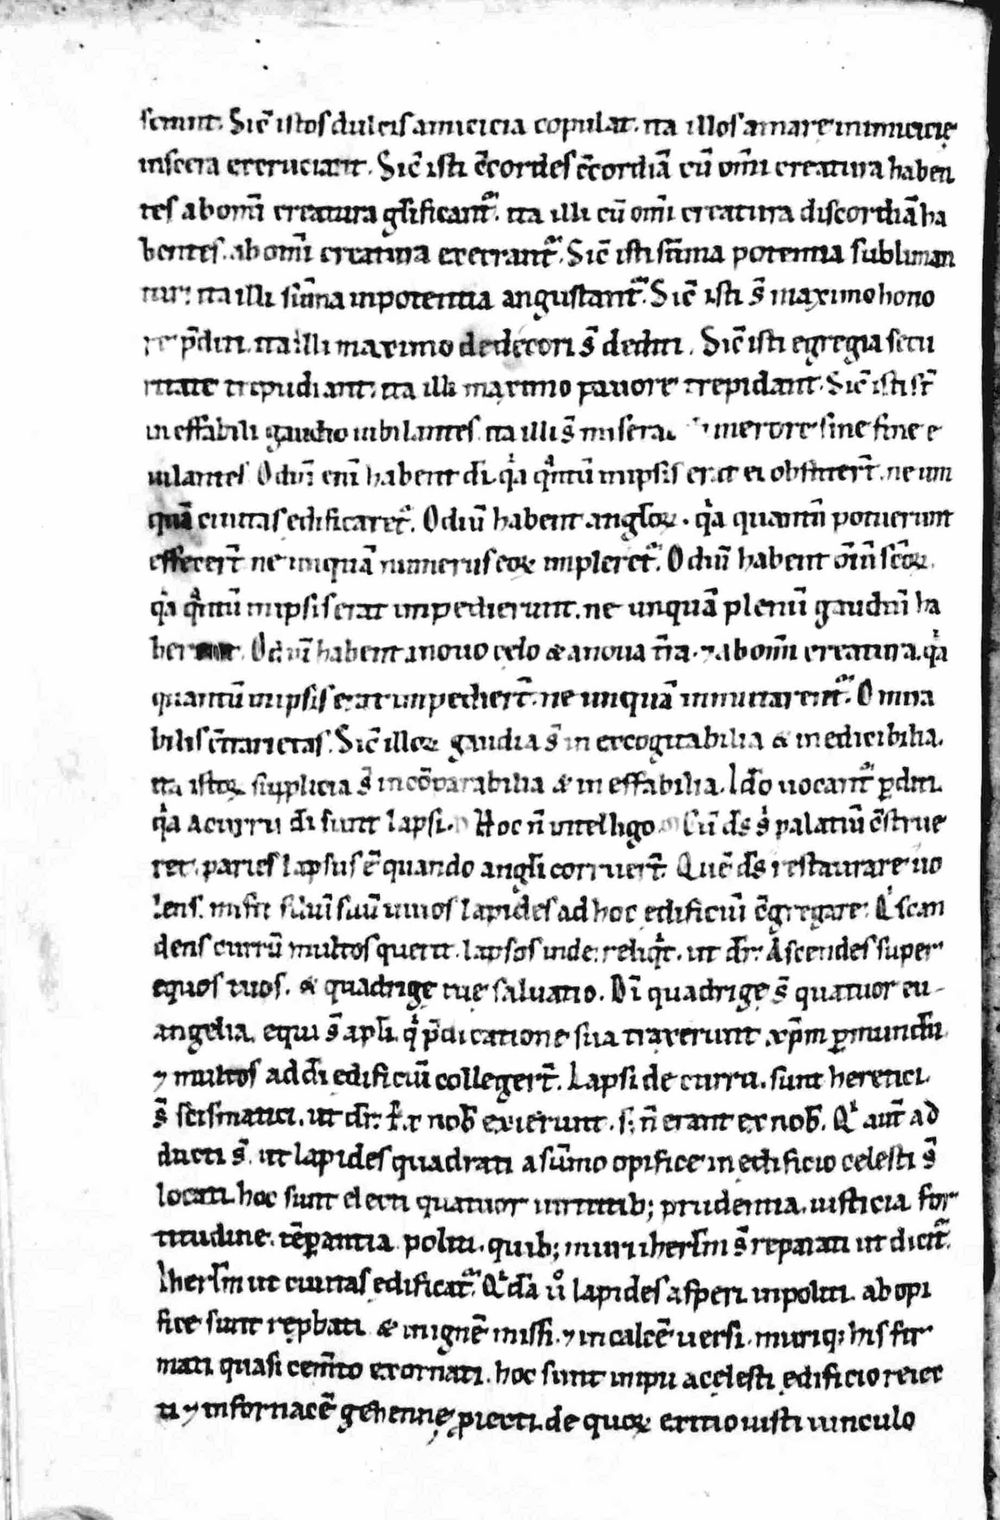 sciunt. Sic̄ istos dulcis amicicia copulat. ita illos amare inimicicię
inscera excruciant. Sic̄ isti c̄cordes c̄cordiā cū om̄i creatura haben
tes ab om̄i creatura gl̄ificant᷑. ita illi cū om̄i creatura discordiā ha
bentes. ab om̄i creatura execrant᷑. Sic̄ isti sūma potentia subliman
tur: ita illi sūma inpotentia angustant᷑. Sic̄ isti s̄ maximo hono
re p̄diti. ita illi maximo dedecori s̄ dediti. Sic̄ isti egregia secu
ritate tripudiant. ita illi maximo pauore trepidant. Sic̄ isti st̄
ineffabili gaudio iubilantes. ita illi s̄ misera merore sine fine e
iulantes. Odiū eni̅ habent dī. qͣa qͣntū in ipsis erat ei obstiter̄t. ne um
quā ciuitas edificaret᷑. Odiū habent angl̄oꝝ. qͣa quantū potuerunt
effecer̄t ne unquā numerus eoꝝ impleret᷑. Odiū habent om̄iū sc̄oꝝ.
qͣa qͣntū in ipsis erat impedierunt. ne unquā plenū gaudiū ha
berent. Odiū habent a nouo celo & a noua t̄ra. ⁊ ab om̄i creatura. qͣa
quantū in ipsis erat impedier̄t. ne unquā inmutarent᷑. O mira
bilis c̄trarietas. Sic̄ illoꝝ gaudia s̄ inexcogitabilia & inedicibilia.
ita istoꝝ supplicia s̄ incōparabilia & ineffabilia. Ido̅ uocant᷑ ꝑditi.
qͣa a curru dī sunt lapsi. Hoc n̄ intelligo. Cū ds̄ sͥ palatiū c̄strue
ret. paries lapsus ē quando angl̄i corruer̄t. Quē ds̄ restaurare uo
lens. misit filiū suū uiuos lapides ad hoc edificiū c̄gregare. Qͥ scan
dens currū multos querit. lapsos inde. reliqͥt. ut dr̄. Ascendes super
equos tuos. & quadrigę tue saluatio. Dī quadrigę s̄ quatuor eu-
angelia. equi s̄ apl̄i. qͥ p̄dicatione sua traxerunt xp̄m ꝑ mundū
⁊ multos ad dī edificiū colleger̄t. Lapsi de curru. sunt heretici.
s̄ scismatici. ut dr̄. Ex nob̄ exierunt. s; n̄ erant ex nob̄. Qͥ aut̄ ad
ducti s̄. ut lapides quadrati a sūmo opifice in edificio celesti s̄
locati. hoc sunt electi quatuor uirtutib; prudentia. iusticia. for
titudine. tēꝑantia politi. quib; muri iherl̄m s̄ reparati ut dicit᷑.
Iherl̄m ut ciuitas edificat᷑. Qͥda̅ uͦ lapides asperi. inpoliti. ab opi
fice sunt reꝓbati. & in ignē missi. ⁊ in calcē uersi. muriqꝫ his fir
mati quasi cem̄to exornati. hoc sunt impii a cęlesti ędificio reiec
ti ⁊ in fornacē gehennę ꝓiecti. de quoꝝ exitio iusti uinculo